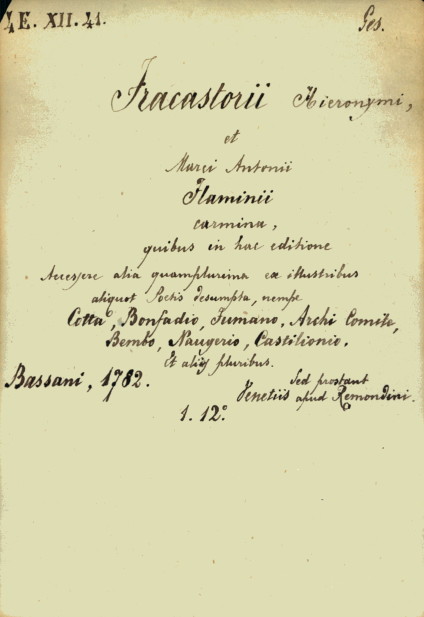 4 E. XII. 41.
Ges.
Fracastorii Hieronymi,
et
Marci Antonii
Flaminii
carmina,
quibus in hac editione
Accessere alia quamplurima ex illustribus
aliquot Poetis desumpta, nempe
Cotta, Bonfadio, Fumano, Archi Comite,
Bembo, Naugerio, Castilionio.
Et aliis pluribus.
Bassani, 1782.
Sed prostant
Venetiis apud Remondini.
1. 12°